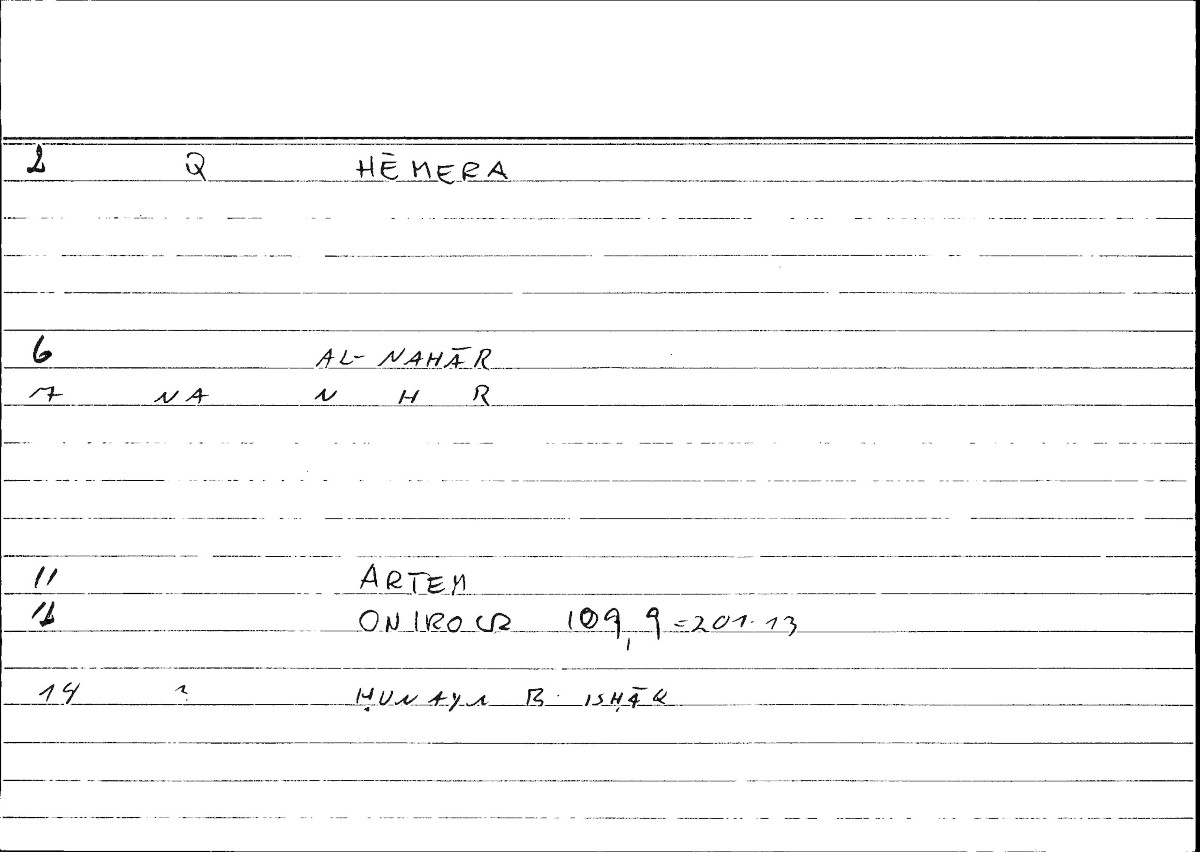 2 Q HĒMERA
6 AL-NAHĀR
7 NA N H R
11 ARTEM
12 ONIROCR 109,9=201.13
14 ? ḤUNAYN B. ISḤĀQ